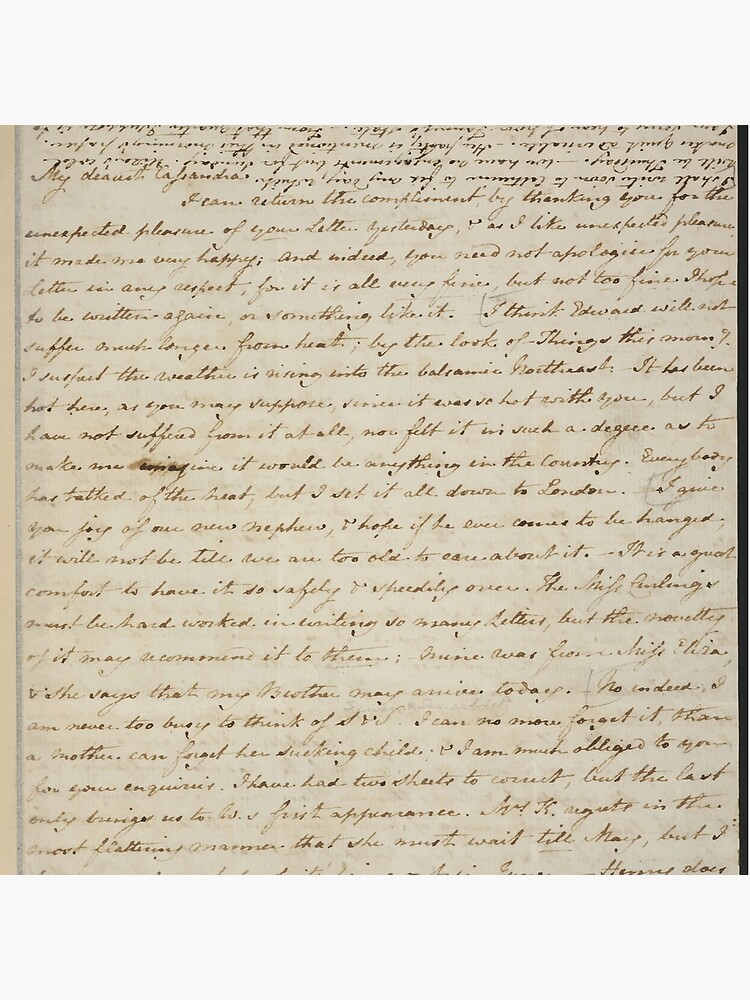 My dearest Cassandra
I can return the compliment by thanking you for the
unexpected pleasure of your Letter yesterday, & as I like unexpected pleasure,
it made me very happy; And indeed, you need not apologise for your
Letter in any respect, for it is all very fine, but not too fine I hope
to be written again, or something like it. I think Edward will not
suffer much longer from heat; by the look of Things this morng
I suspect the weather is rising into the balsamic Northeast. - It has been
hot here, as you may suppose, since it was so hot with you, but I
have not suffered from it at all, nor felt it in such a degree as to
make me imagine it would be anything in the Country. Everybody
has talked of the heat, but I set it all down to London. I give
you joy of our new nephew, & hope if he ever comes to be hanged,
it will not be till we are too old to care about it. - It is a great
comfort to have it so safely & speedily over. The Miss Curlings
must be hard worked in writing so many Letters, but the novelty
of it may recommend it to them; - mine was from Miss Eliza,
& she says that my Brother may arrive today. - No indeed, I
am never too busy to think of S & S. I can no more forget it, than
a mother can forget her sucking child; & I am much obliged to you
for your enquiries. I have had two sheets to correct, but the last
only brings us to W.s first appearance. Mrs K. regrets in the
most flattering manner that she must wait till May, but I
Henry does